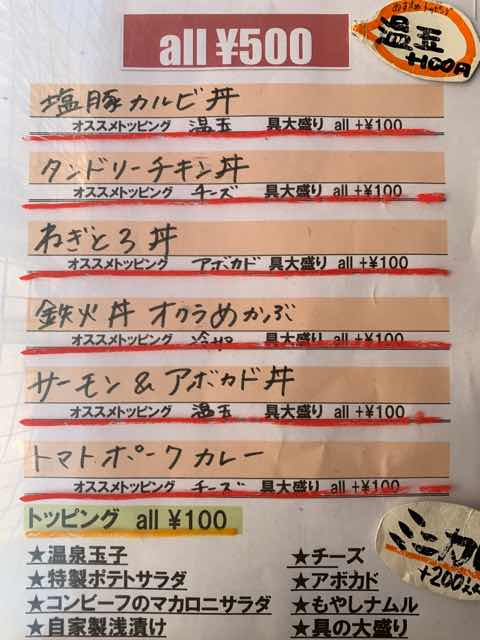 all ¥500
おすすめトッピング
温玉
+100円
塩豚カルビ丼
オススメトッピング 温玉 具大盛り all +¥100
タンドリーチキン丼
オススメトッピング チーズ 具大盛り all +¥100
ねぎとろ丼
オススメトッピング アボカド 具大盛り all +¥100
鉄火丼 オクラめかぶ
オススメトッピング 具大盛り all +¥100
サーモン&アボカド丼
オススメトッピング 温玉 具大盛り all +¥100
トマトポークカレー
オススメトッピング チーズ 具大盛り all +¥100
トッピング all ¥100
★温泉玉子
★特製ポテトサラダ
★コンビーフのマカロニサラダ
★自家製浅漬け
★チーズ
★アボカド
★もやしナムル
★具の大盛り
ミニカレ
+200